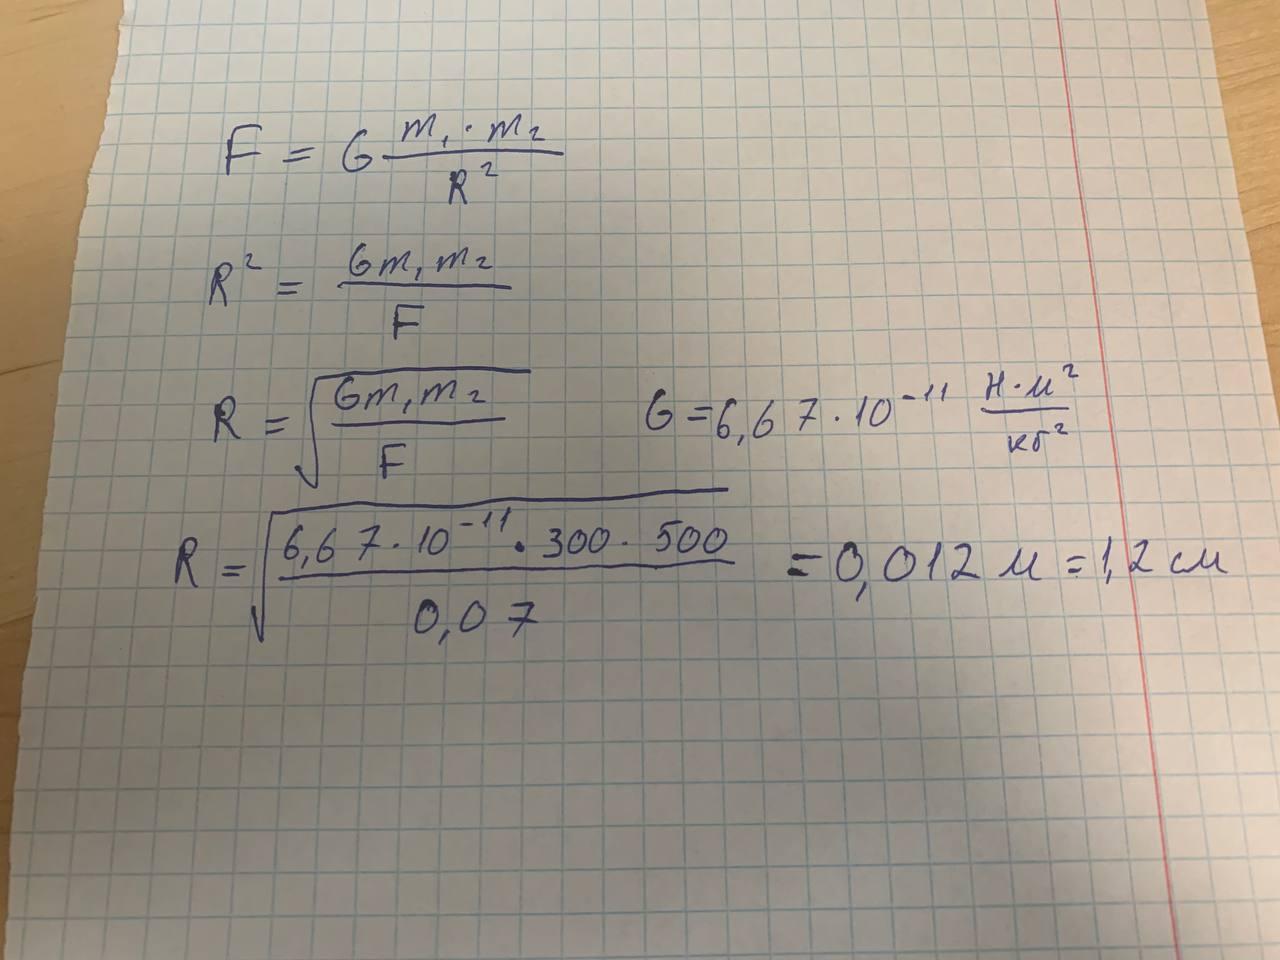 F = G m₁·m₂ / R²
R² = Gm₁m₂ / F
R = √(Gm₁m₂ / F) G = 6,67·10⁻¹¹ Н·м² / кг²
R = √(6,67·10⁻¹¹·300·500 / 0,07) = 0,012 м = 1,2 см